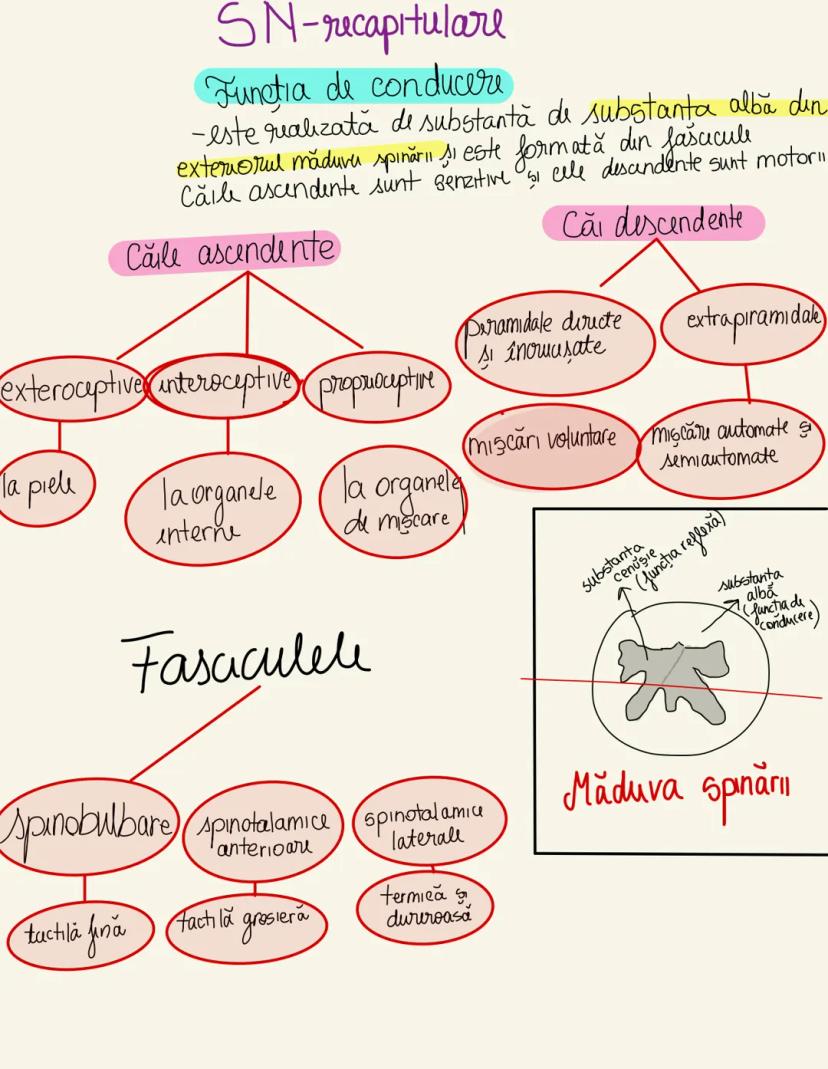 SN-recapitulare
Funcția de conducere
-este realizată de substantă de substanța albă din
exteriorul măduvii spinării și este formată din fascicule
Căile ascendente sunt senzitive și cele descendente sunt motorii
Căile ascendente
Căi descendente
exteroceptive
interoceptive
proprioceptive
piramidale directe
și încrucișate
extrapiramidale
la piele
la organele
interne
la organele
de mișcare
mișcări voluntare
mișcări automate și
semiautomate
substanta
cenușie
(funcția reflexă)
substanta
albă
(functia de
conducere)
Măduva spinării
Fasciculele
spinobulbare
spinotalamice
anterioare
spinotalamice
laterale
tactilă fină
tactilă grosieră
termică și
dureroasă